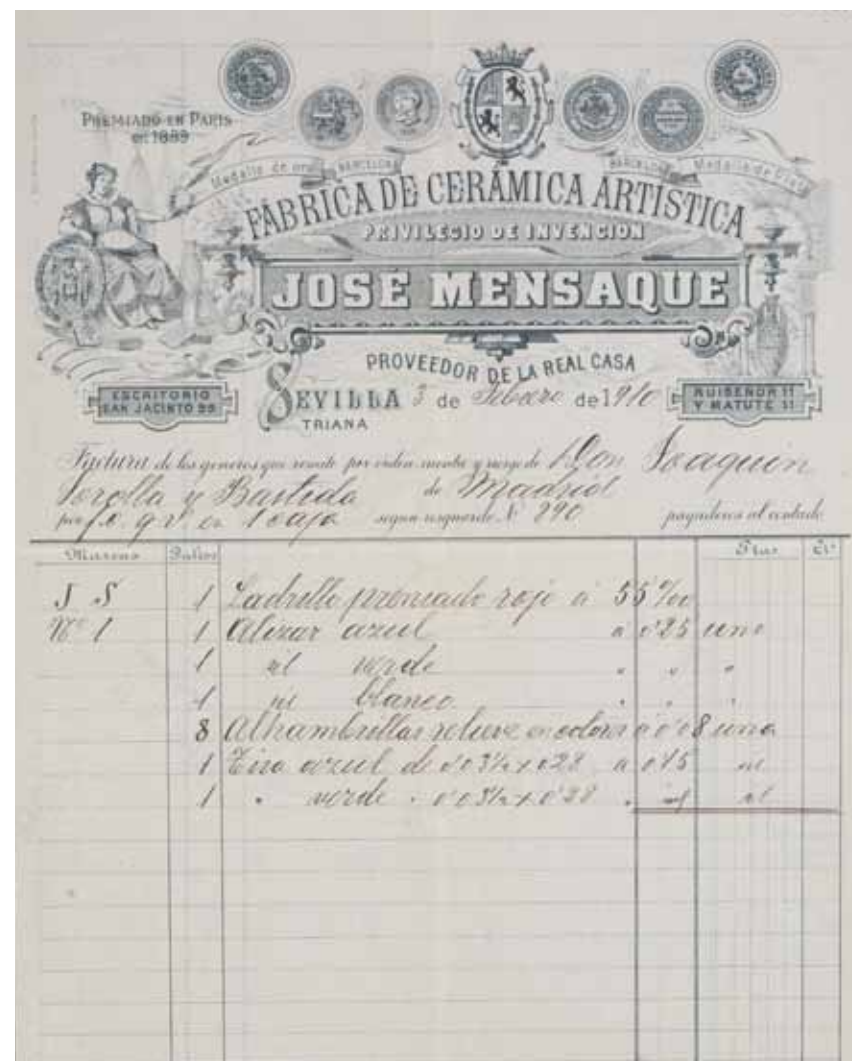 PREMIADO EN PARIS
en 1889
Medalla de oro BARCELONA BARCELONA Medalla de Plata
FÁBRICA DE CERÁMICA ARTÍSTICA
PRIVILEGIO DE INVENCION
JOSÉ MENSAQUE
PROVEEDOR DE LA REAL CASA
ESCRITORIO
SAN JACINTO
SEVILLA 3 de Febrero de 1910
TRIANA
RUISEÑOR 11
Y MATUTE 11
Factura de los generos que remite por orden cuenta y riesgo de Don Joaquin
Sorolla y Bastida de Madrid
por f.c. g.v. en 1 caja segun resguardo Nº 890 pagaderos al contado
Marcas Bultos Ptas Cs
J S 1 Ladrillo prensado rojo á 55 %00
Nº 1 1 Alizar azul a 0'25 uno
1 id verde " " "
1 id blanco " " "
8 Alhambrillas relieve en colores a 0'08 una
1 Tira azul de 0'03½ x 0'28 a 0'15 id
1 " verde " 0'03½ x 0'28 " id id